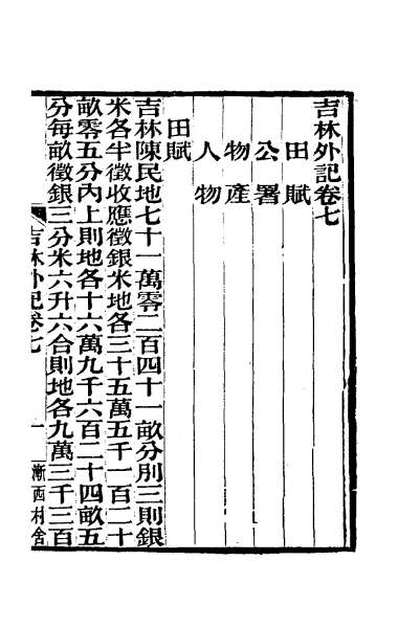 吉林外記卷七
田賦
公署
物產
人物
田賦
吉林陳民地七十一萬零二百四十一畝分別三則銀
米各半徵收應徵銀米地各三十五萬五千一百二十
畝零五分內上則地各十六萬九千六百二十四畝五
分每畝徵銀三分米六升六合則地各九萬三千三百
吉林外記卷七
一
漸西村舍